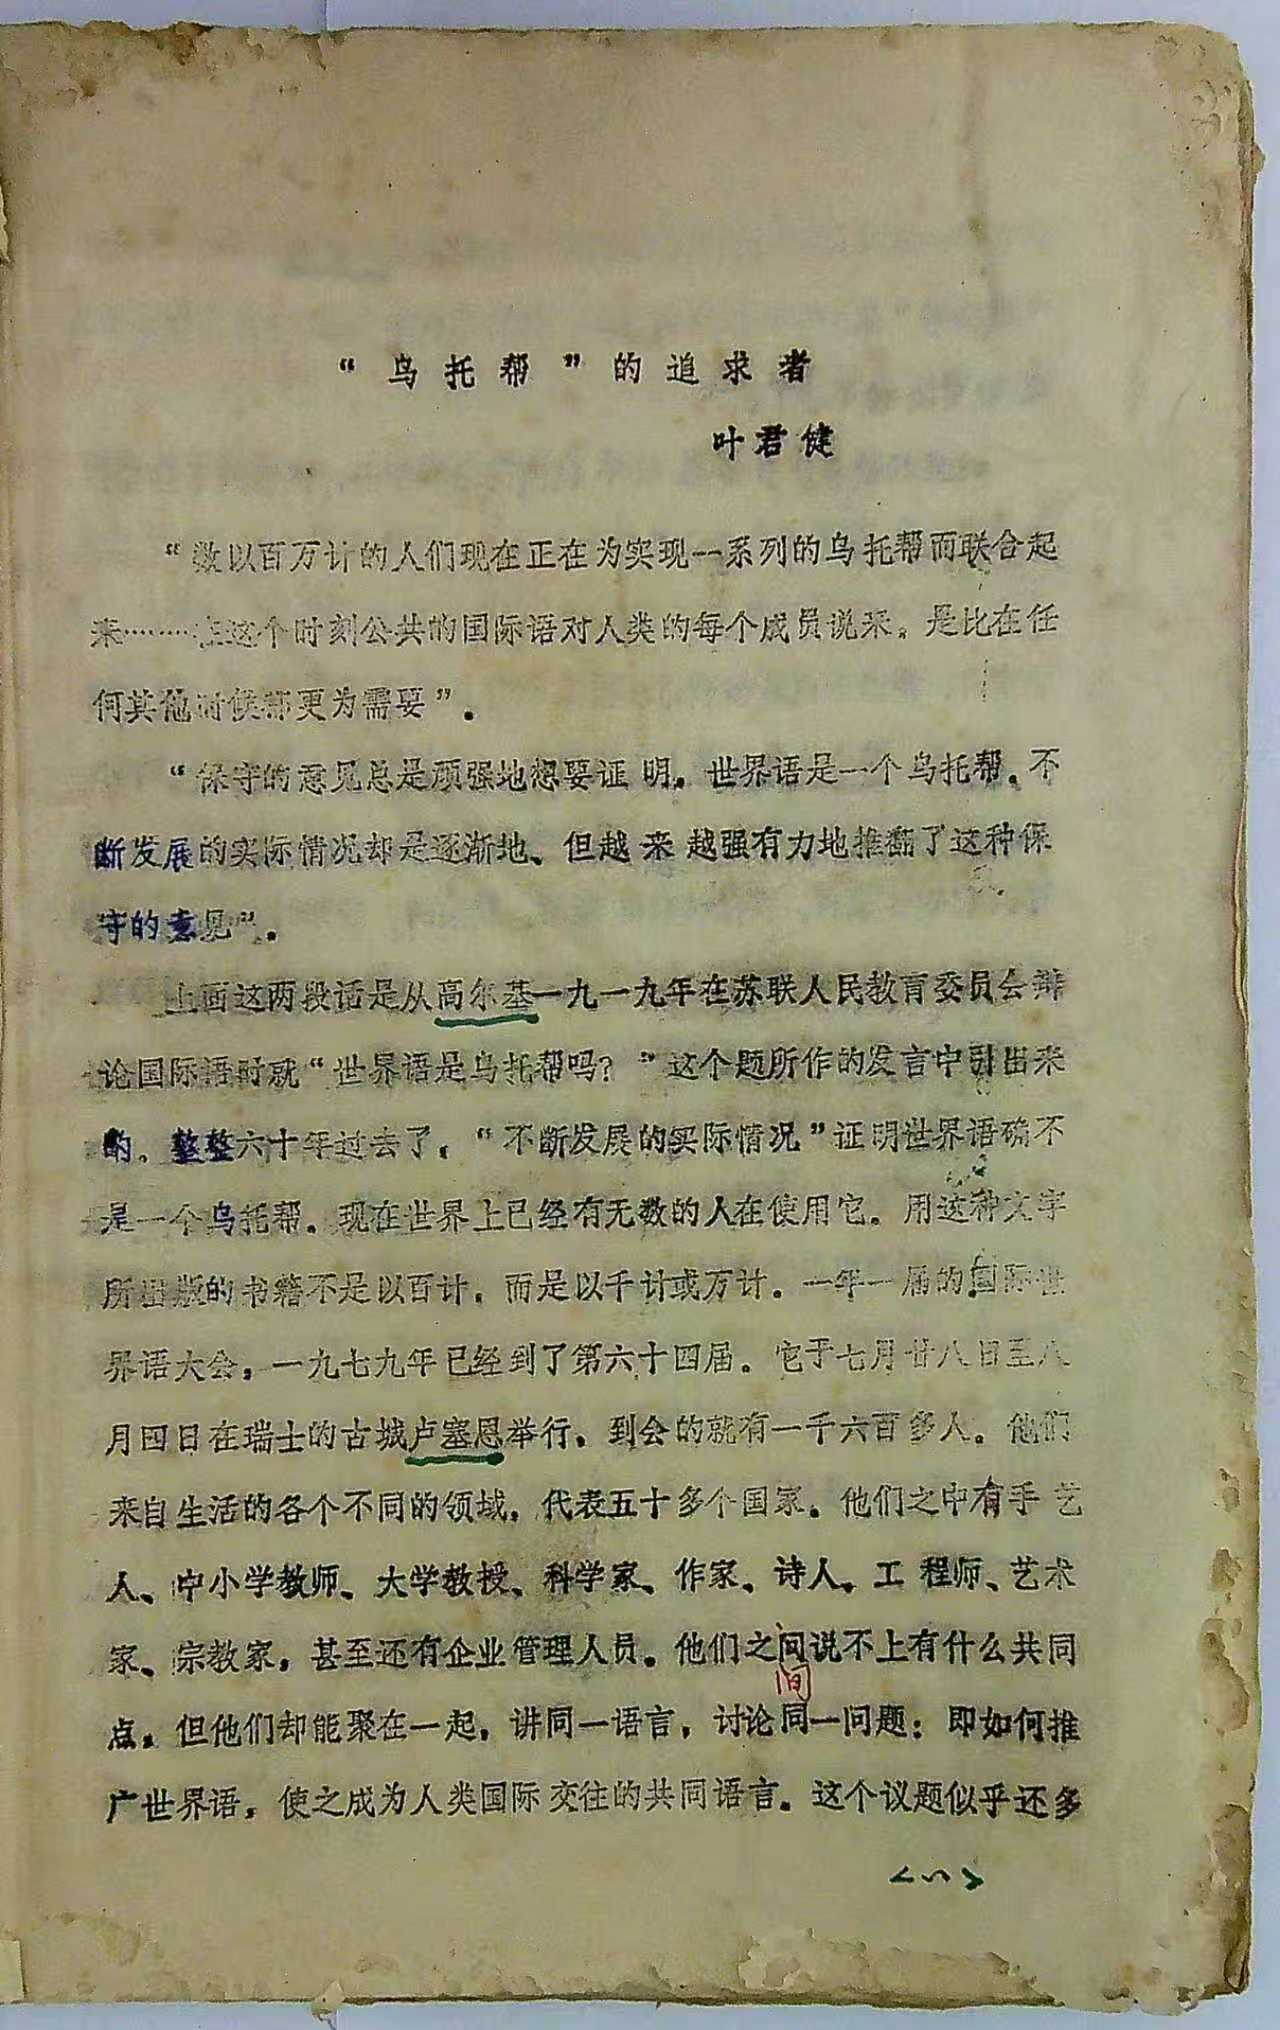 “乌托帮”的追求者
叶君健
“数以百万计的人们现在正在为实现一系列的乌托帮而联合起
来………在这个时刻公共的国际语对人类的每个成员说来。是比在任
何其他时候都更为需要”。
“保守的意见总是顽强地想要证明。世界语是一个乌托帮。不
断发展的实际情况却是逐渐地、但越来越强有力地推翻了这种保
守的意见”。
上面这两段话是从高尔基一九一九年在苏联人民教育委员会辩
论国际语时就“世界语是乌托帮吗？”这个题所作的发言中引出来
的。整整六十年过去了，“不断发展的实际情况”证明世界语确不
是一个乌托帮。现在世界上已经有无数的人在使用它。用这种文字
所出版的书籍不是以百计，而是以千计或万计。一年一届的国际世
界语大会，一九七九年已经到了第六十四届。它于七月廿八日至八
月四日在瑞士的古城卢塞恩举行，到会的就有一千六百多人。他们
来自生活的各个不同的领域，代表五十多个国家。他们之中有手艺
人、中小学教师、大学教授、科学家、作家、诗人、工程师、艺术
家、宗教家，甚至还有企业管理人员。他们之间说不上有什么共同
间
点，但他们却能聚在一起，讲同一语言，讨论同一问题：即如何推
广世界语，使之成为人类国际交往的共同语言。这个议题似乎还多
<5>